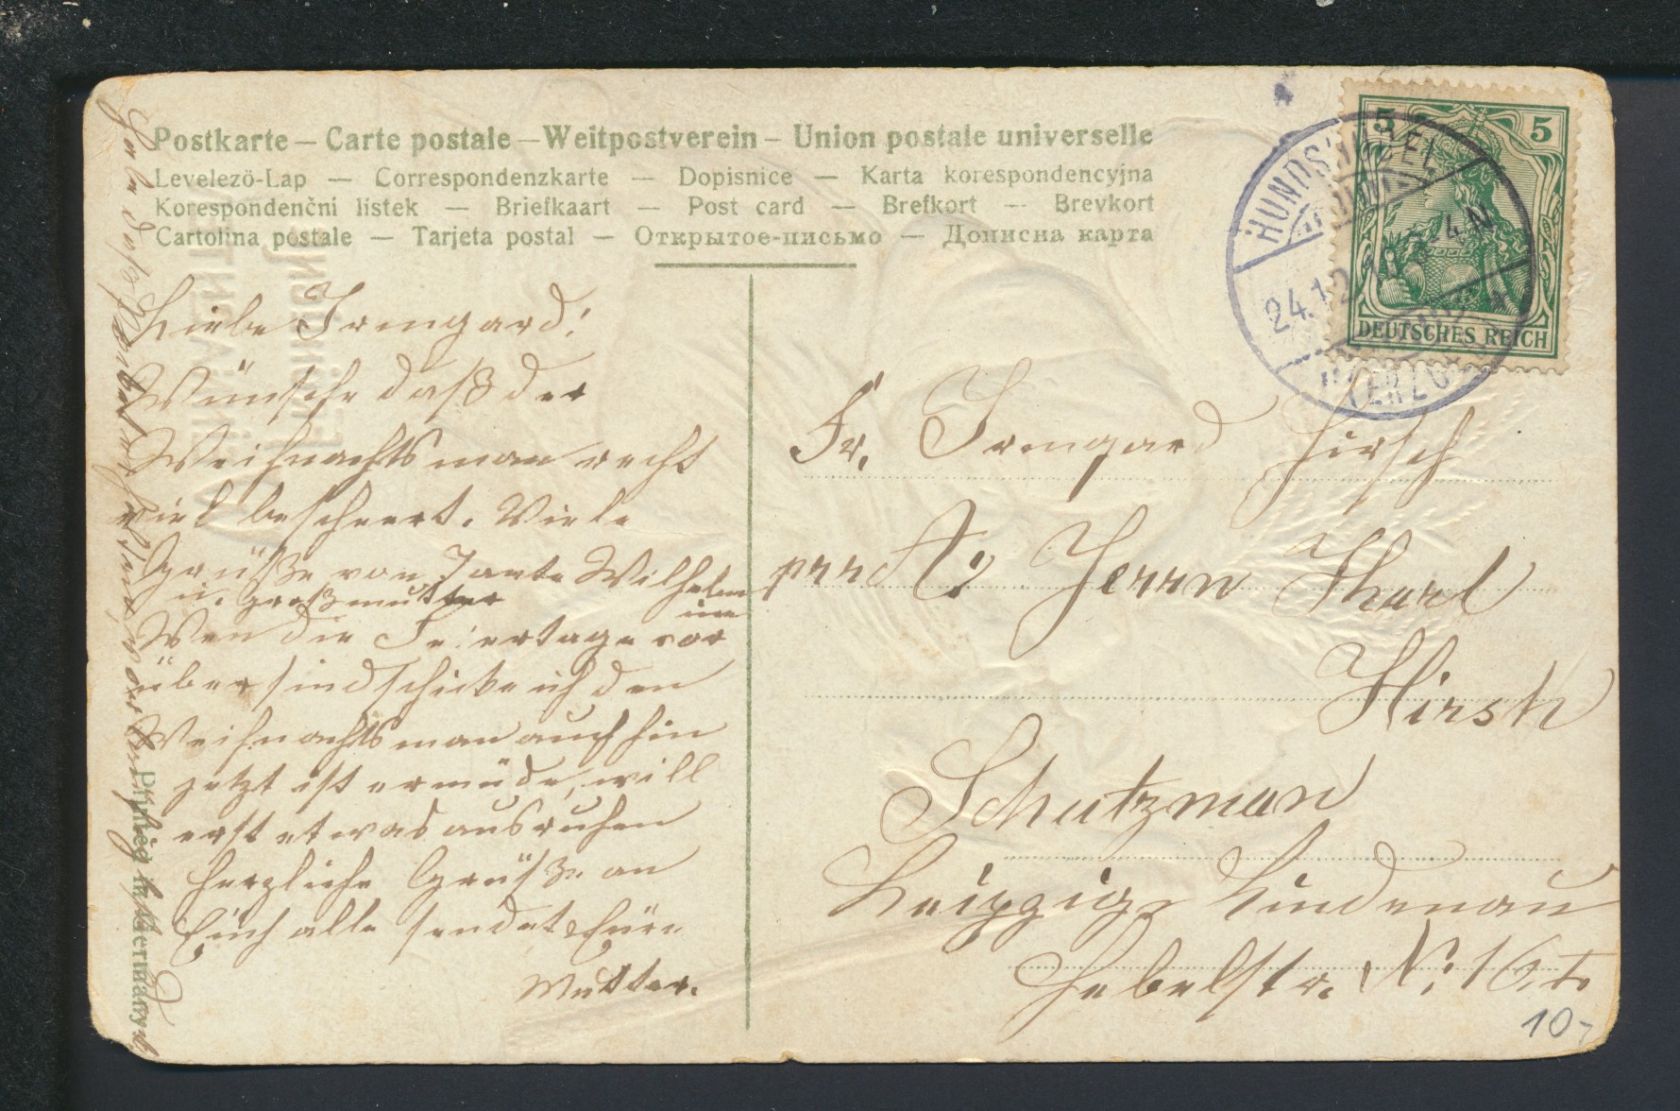 Postkarte – Carte postale – Weltpostverein – Union postale universelle
Levelezö-Lap — Correspondenzkarte — Dopisnice — Karta korespondencyjna
Korespondenční lístek — Briefkaart — Post card — Brefkort — Brevkort
Cartolina postale — Tarjeta postal — Открытое-письмо — Дописна карта
5 5
DEUTSCHES REICH
24.12
Liebe Irmgard!
Wünsche daß der
Weihnachtsman recht
viel bescheert. Viele
Grüße von Tante Wilhelm
u. Großmutter
Wen die Feiertage vor
über sind schicke ich den
Weihnachtsman auch hin
jetzt ist er müde, will
erst etwas ausruhen
herzliche Grüße an
Euch alle sendet Eure
Mutter.
Habe daß
Printed in Germany
Fr. Irmgard Hirsch
Herrn Kharl
Hirsch
Schutzman
Leipzig Lindenau
Hebelstr. N: 16.
10-